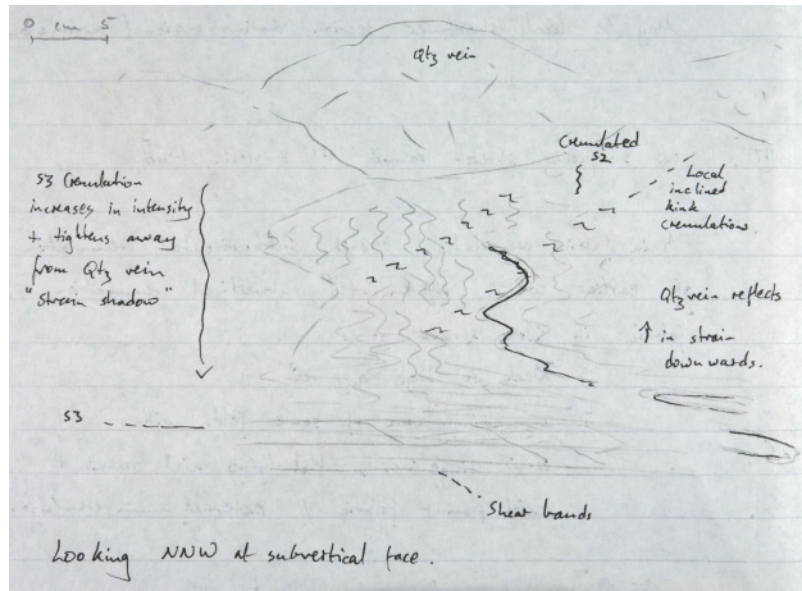 0 cm 5
Qtz vein
Crenulated
S2
Local
inclined
kink
crenulations.
S3 Crenulation
increases in intensity
+ tightens away
from Qtz vein
"Strain shadow"
Qtz vein reflects
↑ in strain
downwards.
S3
Shear bands
Looking NNW at subvertical face.